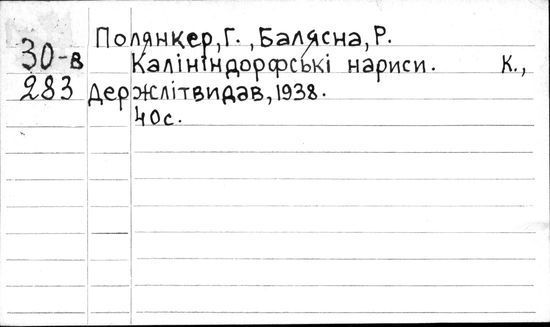 Полянкер, Г., Балясна, Р.
30-в Калініндорфські нариси. К.,
283 Держлітвидав, 1938.
40с.